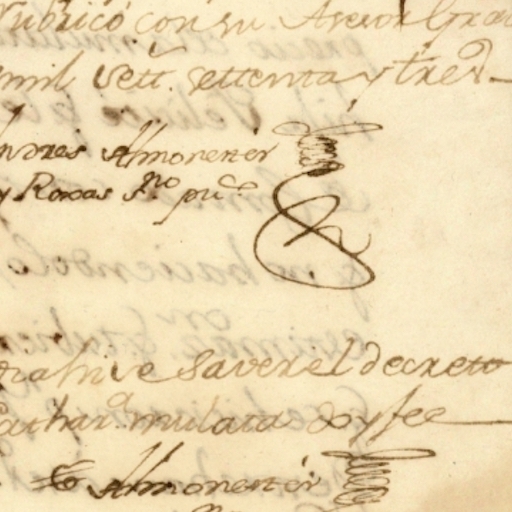 rubricó con su Asesor Gral
mil sett.s settenta y tres
Andres Almonester
y Roxas s.no pu.co
hice saver el decreto
Cathar.a mulata doy fee
Almonester